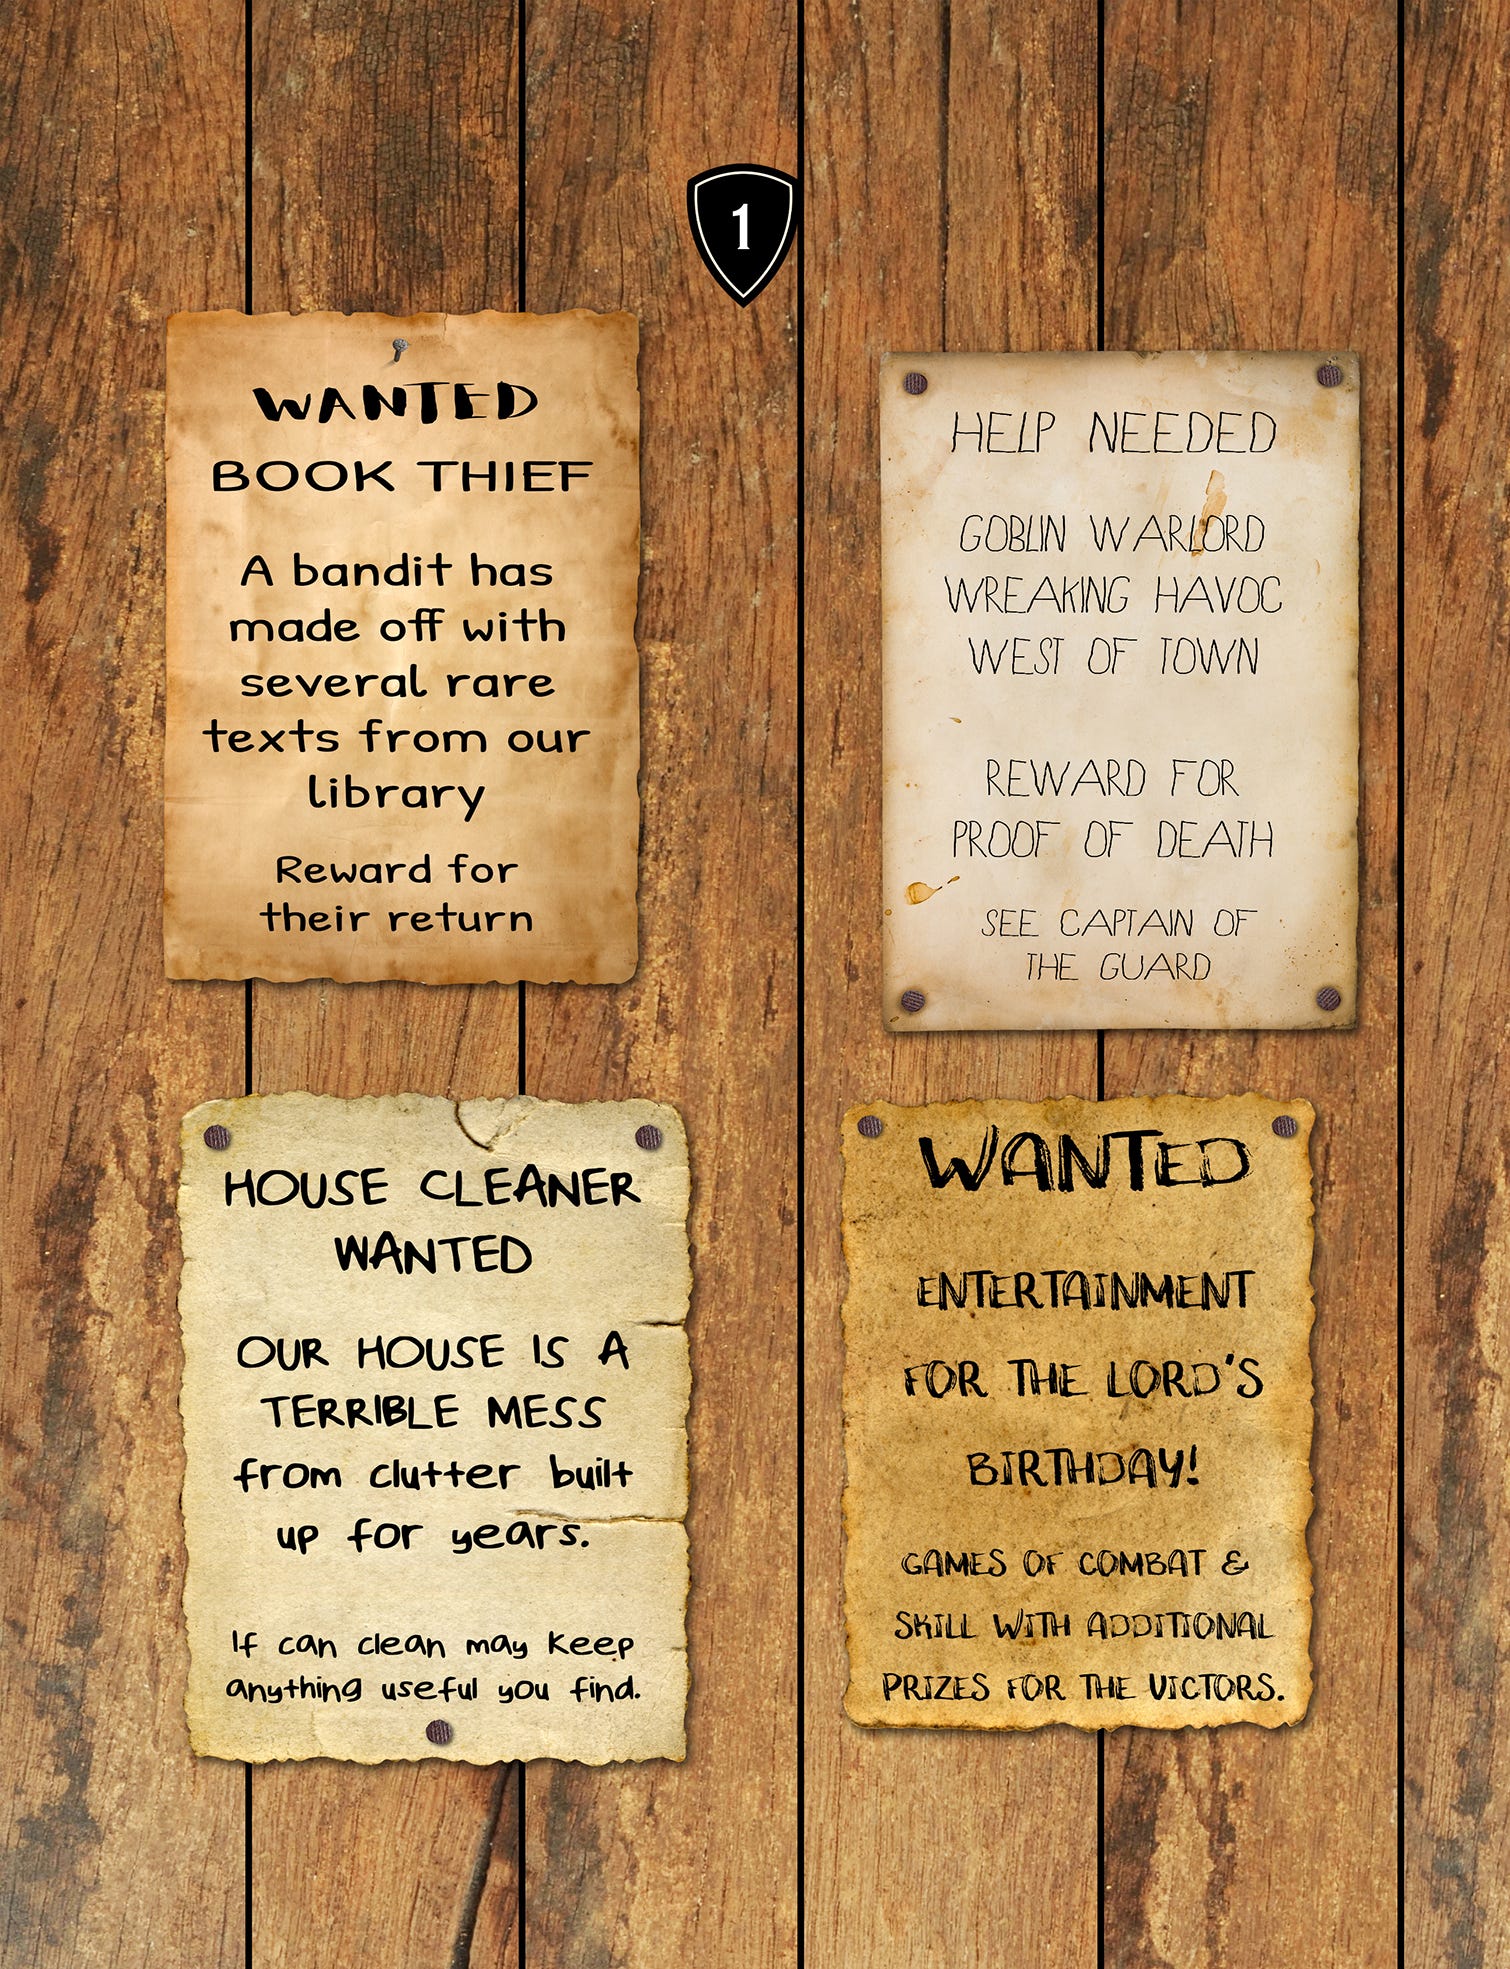 1
WANTED
BOOK THIEF
A bandit has
made off with
several rare
texts from our
library
Reward for
their return
HELP NEEDED
GOBLIN WARLORD
WREAKING HAVOC
WEST OF TOWN
REWARD FOR
PROOF OF DEATH
SEE CAPTAIN OF
THE GUARD
HOUSE CLEANER
WANTED
OUR HOUSE IS A
TERRIBLE MESS
from clutter built
up for years.
If can clean may keep
anything useful you find.
WANTED
ENTERTAINMENT
FOR THE LORD'S
BIRTHDAY!
GAMES OF COMBAT &
SKILL WITH ADDITIONAL
PRIZES FOR THE VICTORS.